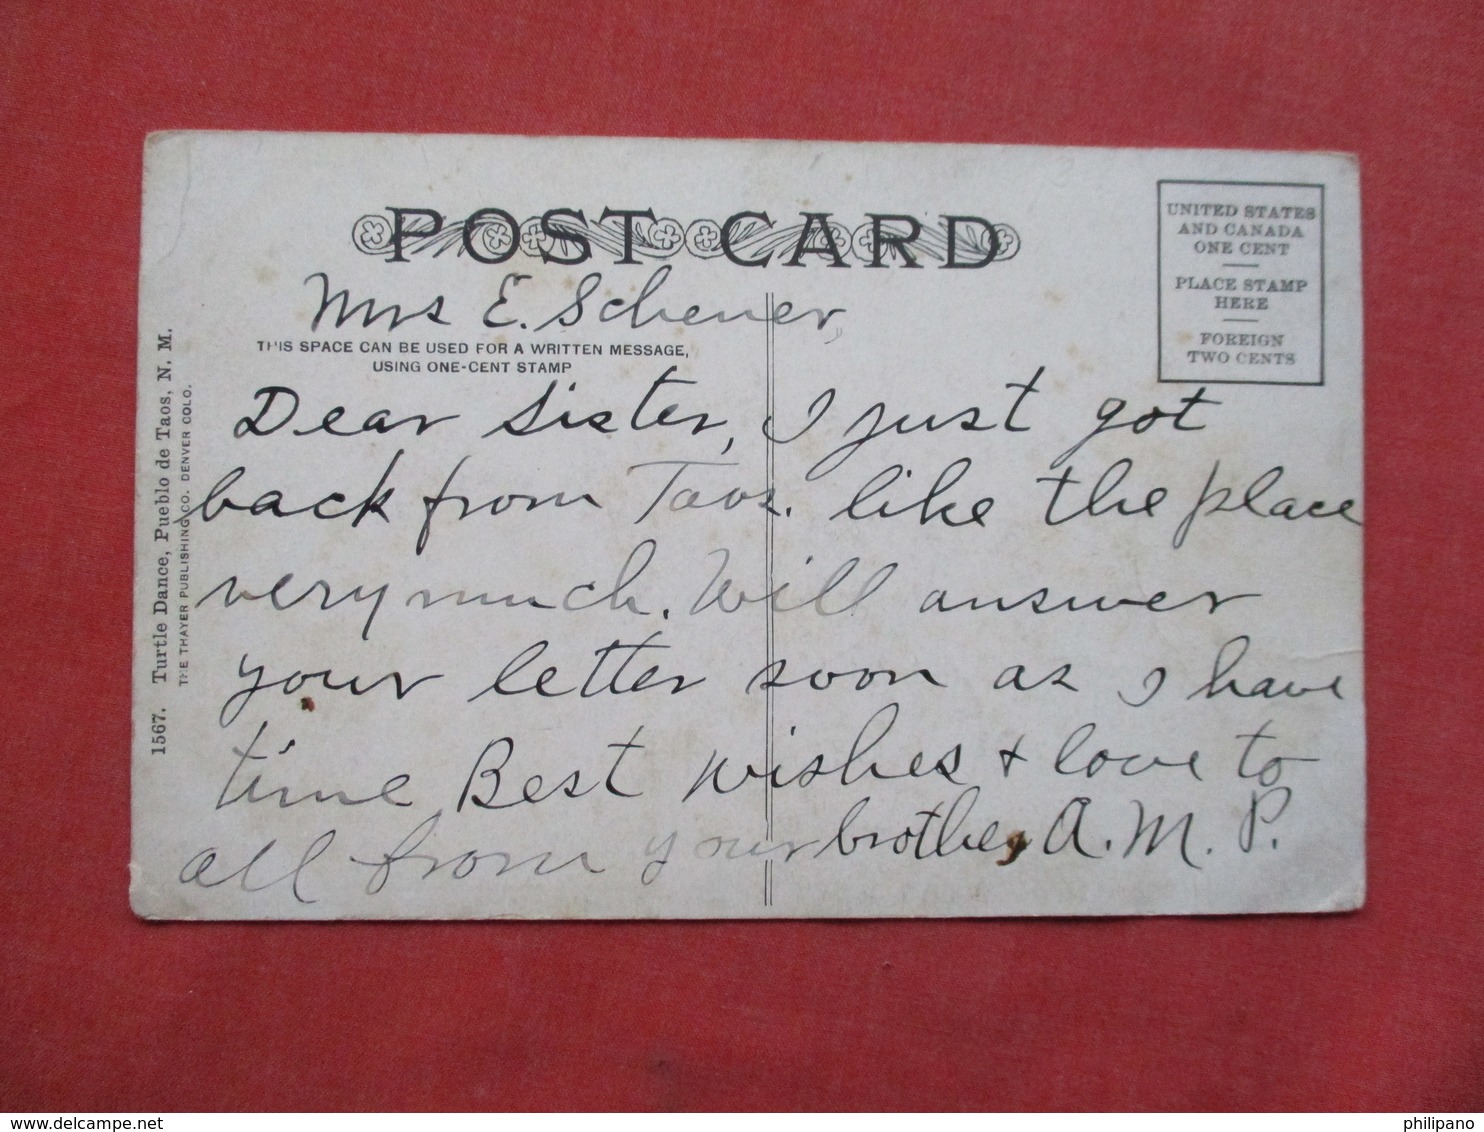 POST CARD
UNITED STATES
AND CANADA
ONE CENT
PLACE STAMP
HERE
FOREIGN
TWO CENTS
Mrs E. Scheuer
THIS SPACE CAN BE USED FOR A WRITTEN MESSAGE,
USING ONE-CENT STAMP
Dear Sister, I just got
back from Taos. like the place
very much. Will answer
your letter soon as I have
time Best wishes + love to
all from your brother A. M. P.
1567. Turtle Dance, Pueblo de Taos, N. M.
THE THAYER PUBLISHING CO. DENVER COLO.
delcampe.net
philipano